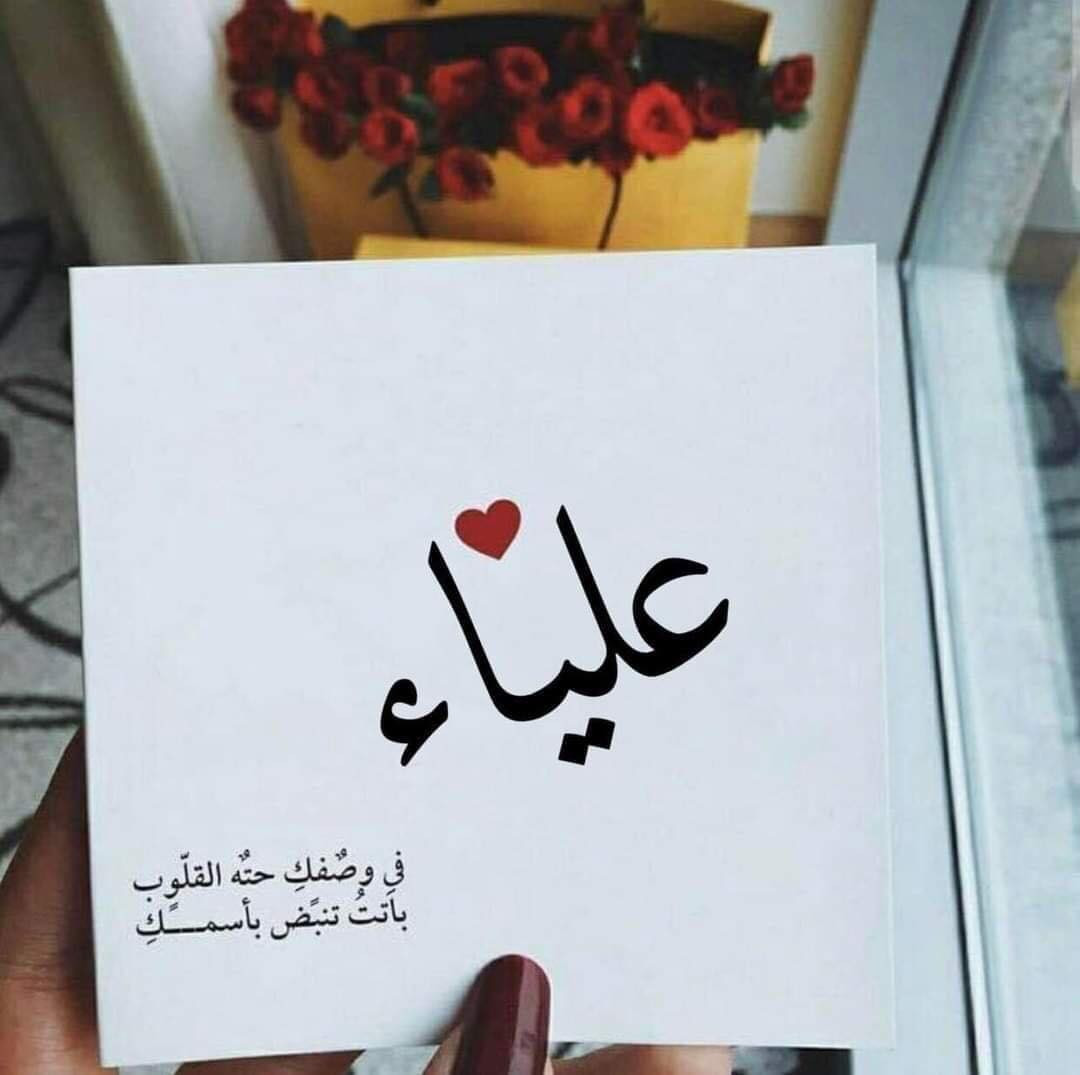 علياء
في وصٌفكِ حتٌه القلّوب
باَتتُ تنبًض بأسمـــكًِ